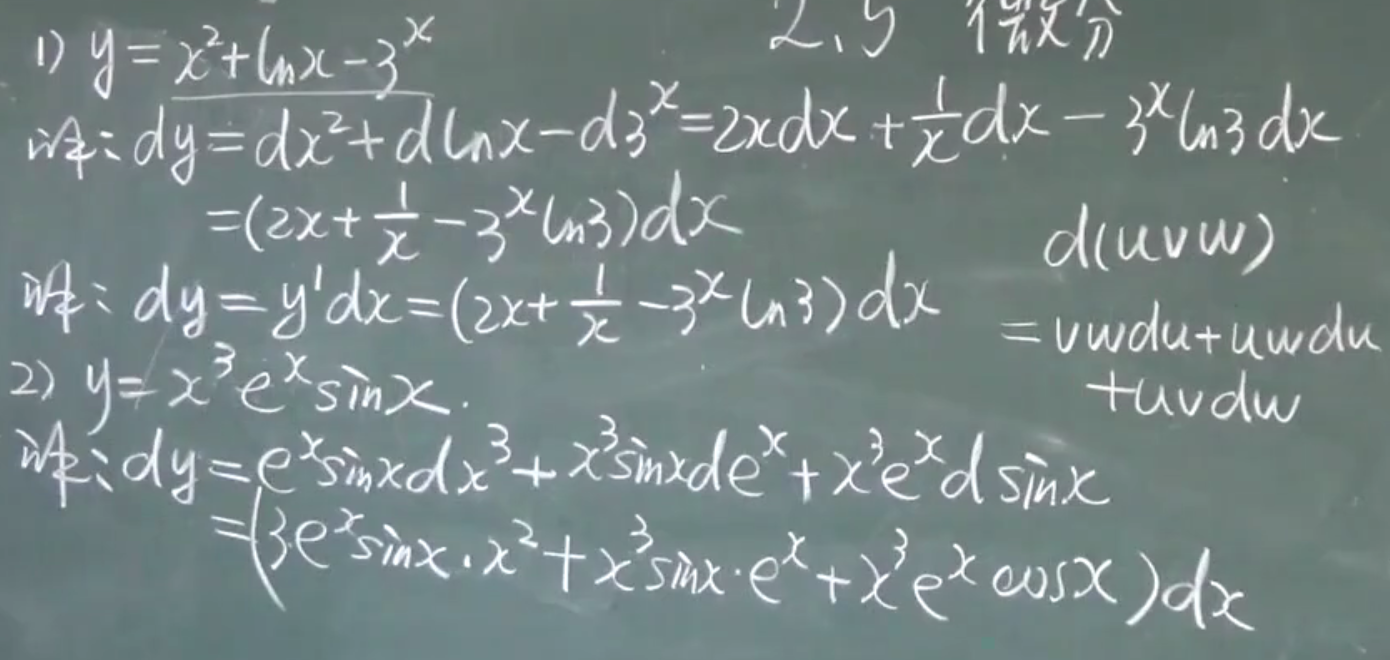 2.5 微分
1) y=x²+lnx-3ˣ
解: dy=dx²+dlnx-d3ˣ=2xdx+1/x dx-3ˣln3dx
=(2x+1/x-3ˣln3)dx
解: dy=y'dx=(2x+1/x-3ˣln3)dx
d(uvw)
=vwdu+uwdu
+uvdw
2) y=x³eˣsinx.
解: dy=eˣsinxdx³+x³sinxdeˣ+x³eˣdsinx
=(3eˣsinx·x²+x³sinx·eˣ+x³eˣcosx)dx